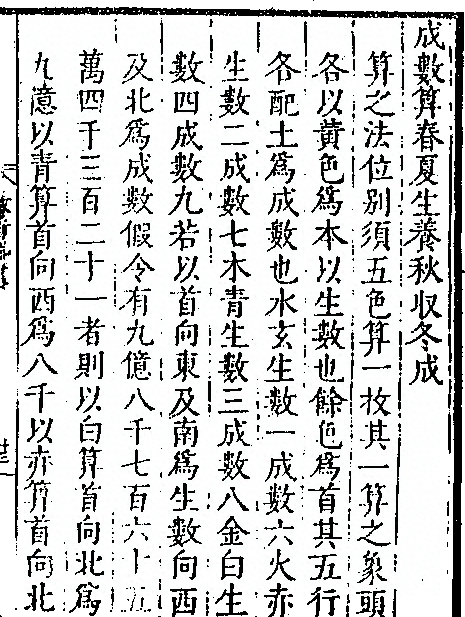 成數算春夏生養秋収冬成
算之法位別須五色算一枚其一算之象頭
各以黄色為本以生數也餘色為首其五行
各配土為成數也水玄生數一成數六火赤
生數二成數七木青生數三成數八金白生
數四成數九若以首向東及南為生數向西
及北為成數假令有九億八千七百六十五
萬四千三百二十一者則以白算首向北為
九億以青算首向西為八千以赤算首向北